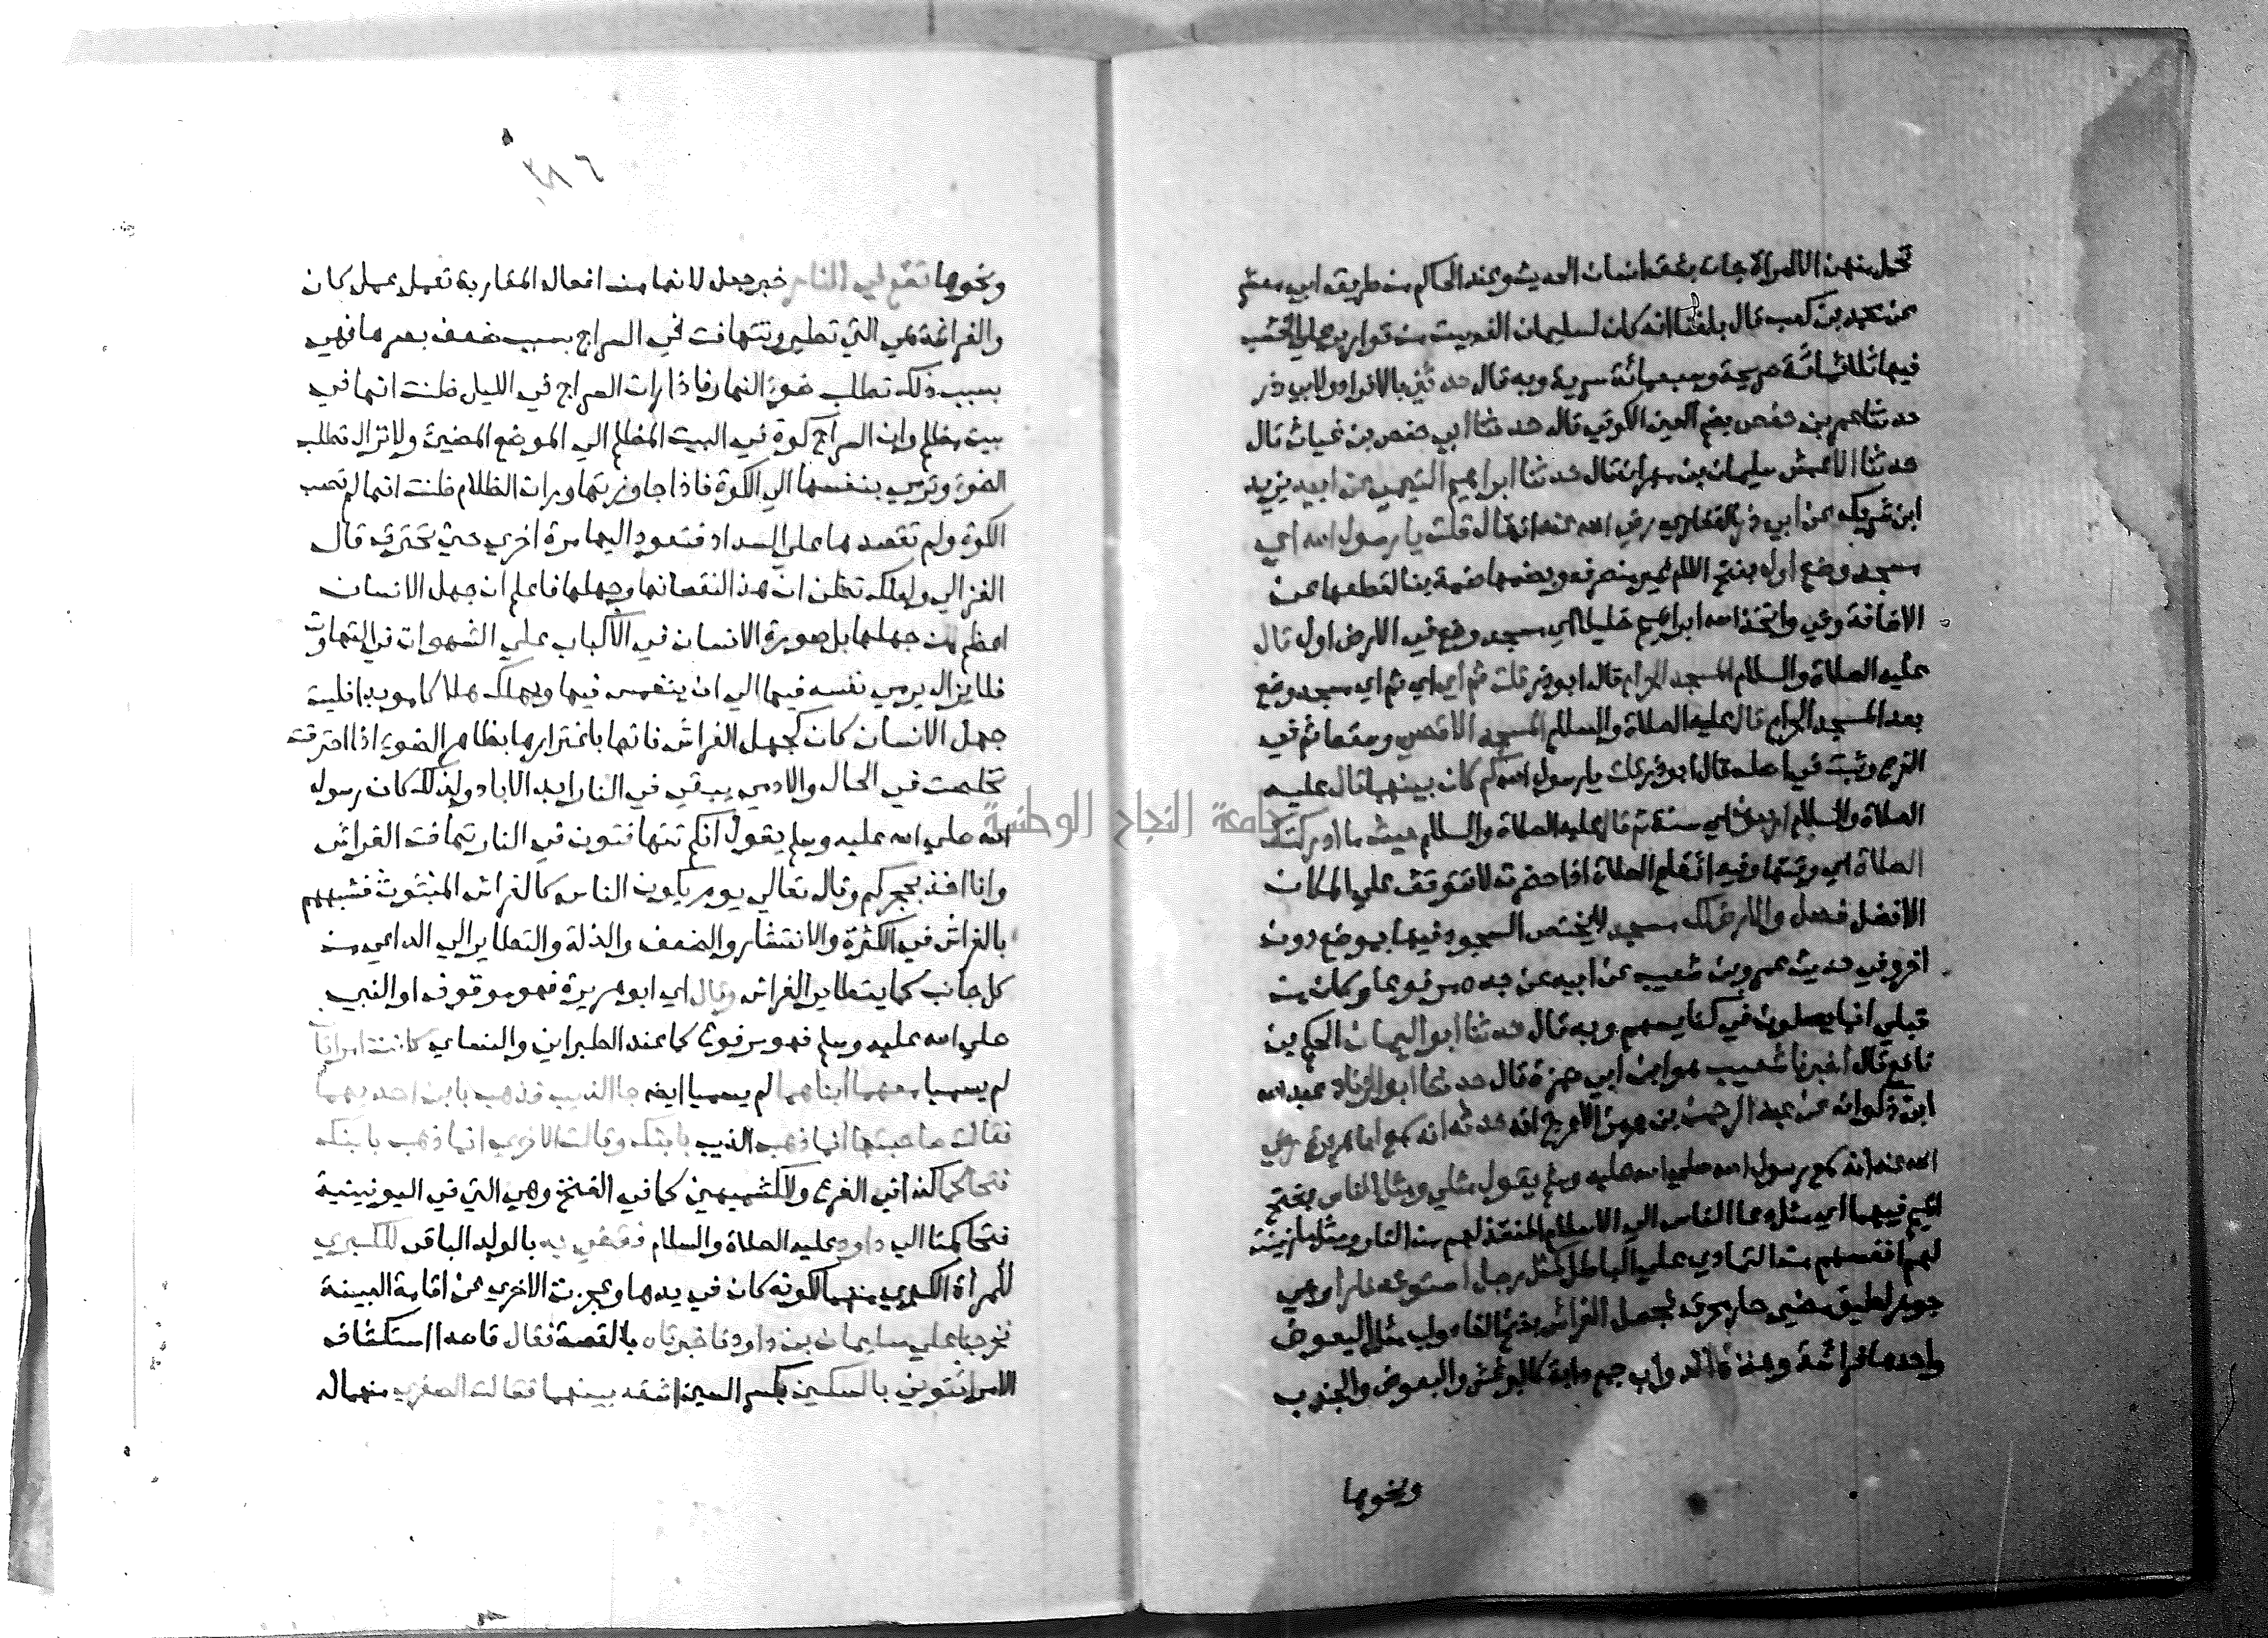 تحمل منهن الا امراة جات بشق انسان الحديث وعند الحاكم من طريق ابي معشر
عن محمد بن كعب قال بلغنا انه كان لسليمان الف بيت من قوارير علي الخشب
فيها ثلاثمائة صريحة وسبعمائة سرية وبه قال حدثني بالافراد ولابي ذر
حدثنا عمر بن حفص بضم العين الكوفي قال حدثنا ابي حفص بن غياث قال
حدثنا الاعمش سليمان بن مهران قال حدثنا ابراهيم التيمي عن ابيه يزيد
ابن شريك عن ابي ذر الغفاري رضي الله عنه انه قال قلت يا رسول الله اي
مسجد وضع اول بفتح اللام غير منصرف وبضمها ضمة بنا لقطعها عن
الاضافة وفي واتخذ الله ابراهيم خليلا اي مسجد وضع في الارض اول قال
عليه الصلاة والسلام المسجد الحرام قال ابو ذر قلت ثم اي اي ثم اي مسجد وضع
بعد المسجد الحرام قال عليه الصلاة والسلام المسجد الاقصي وسقط ثم في
الفرع وثبت في اصله قال ابو ذر قلت يا رسول الله كم كان بينهما قال عليه
الصلاة والسلام اربعون اي سنة ثم قال عليه الصلاة والسلام حيث ما ادركتك
الصلاة اي وقتها وفيه ايقاع الصلاة اذا حضرت لا تتوقف علي المكان
الافضل فصل والارض لك مسجد لا يختص السجود فيها بموضع دون
اخر وفي حديث عمرو بن شعيب عن ابيه عن جده مرفوعا وكان من
قبلي انما يصلون في كنايسهم وبه قال حدثنا ابو اليمان الحكم بن
نافع قال اخبرنا شعيب هو ابن ابي حمزة قال حدثنا ابو الزناد عبد الله
ابن ذكوان عن عبد الرحمن بن هرمز الاعرج انه حدثه انه سمع ابا هريرة رضي
الله عنه انه سمع رسول الله صلي الله عليه وسلم يقول مثلي ومثل الناس بفتح
الميم فيهما اي مثل دعا الناس الي الاسلام المنقذ لهم من النار ومثل ما زينت
لهم انفسهم من التمادي علي الباطل كمثل رجل استوقد نارا وهي
جوهر لطيف مضي حار محرق فجعل الفراش بفتح الفا دواب مثل البعوض
واحدها فراشة وهذه الدواب جمع دابة كالبرغش والبعوض والجندب
ونحوها
٣٨٦
ونحوها تقع في النار خبر جعل لانها من افعال المقاربة تعمل عمل كان
والفراشة هي التي تطير وتتهافت في السراج بسبب ضعف بصرها فهي
بسبب ذلك تطلب ضوء النهار فاذا رات السراج في الليل ظنت انها في
بيت مظلم وان السراج كوة في البيت المظلم الي الموضع المضيئ ولا تزال تطلب
الضوء وترمي بنفسها الي الكوة فاذا جاوزتها ورات الظلام ظنت انها لم تصب
الكوة ولم تقصدها علي السداد فتعود اليها مرة اخري حتي تحترق قال
الغزالي ولعلك تظن ان هذا النقصانها وجهلها فاعلم ان جهل الانسان
اعظم من جهلها بل صورة الانسان في الاكباب علي الشهوات في التهافت
فلا يزال يرمي نفسه فيها الي ان ينغمس فيها ويهلك هلاكا موبدا فليت
جهل الانسان كان كجهل الفراش فانها باغترارها بظاهر الضوء اذا احترقت
تخلصت في الحال والادمي يبقي في النار ابد الاباد ولذلك كان رسول
الله صلي الله عليه وسلم يقول انكم تتهافتون في النار تهافت الفراش
وانا اخذ بحجزكم وقال تعالي يوم يكون الناس كالفراش المبثوث فشبههم
بالفراش في الكثرة والانتشار والضعف والذلة والتطاير الي الداعي من
كل جانب كما يتطاير الفراش وقال اي ابو هريرة فهو موقوف او النبي
صلي الله عليه وسلم فهو مرفوع كما عند الطبراني والنساي كانت امراتا
لم يسميا معهما ابناهما لم يسميا ايضا جا الذيب فذهب بابن احديهما
فقالت صاحبتها انما ذهب الذيب بابنك وقالت الاخري انما ذهب بابنك
فتحاكما كذا في الفرع وللكشميهني كما في الفتح وهي التي في اليونينية
فتحاكمتا الي داود عليه الصلاة والسلام فقضي به بالولد الباقي للكبري
للمراة الكبري منهما لكونه كان في يدها وعجزت الاخري عن اقامة البينة
فخرجتا علي سليمان بن داود فاخبرتاه بالقصة فقال قاصدا استكشاف
الامر ائتوني بالسكين بكسر السين اشقه بينهما فقالت الصغري منهما له
جامعة النجاح الوطنية